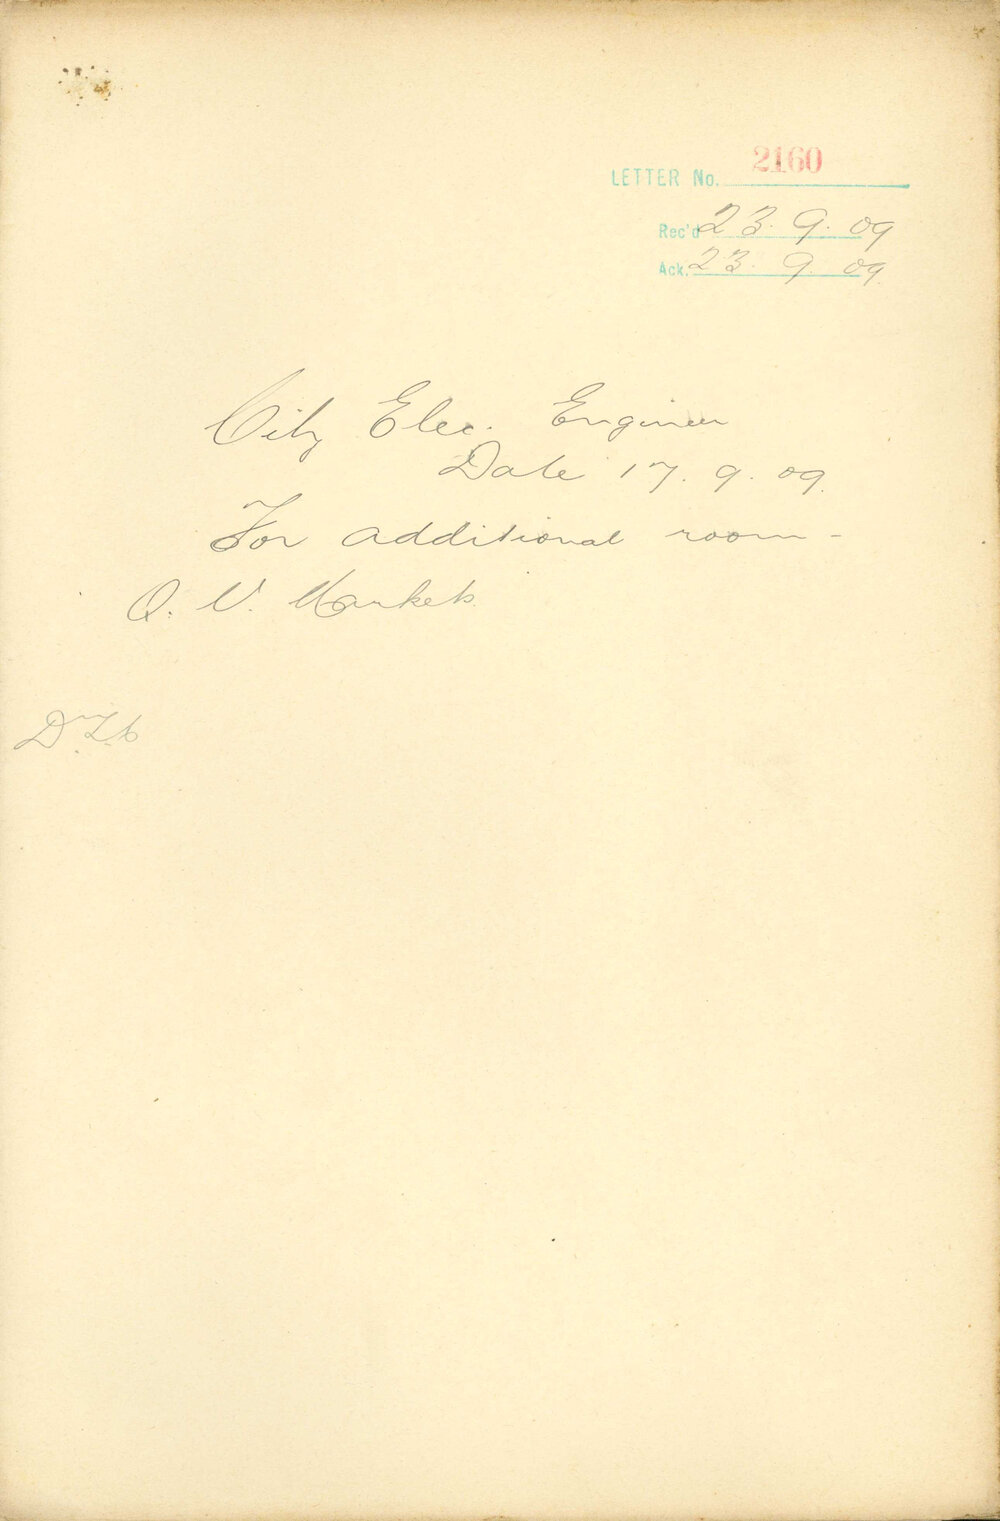 LETTER No. 2160
Rec'd 23. 9. 09
Ack. 23. 9. 09.
City Elec. Engineer
Date 17. 9. 09.
For additional room -
Q. V. Markets.